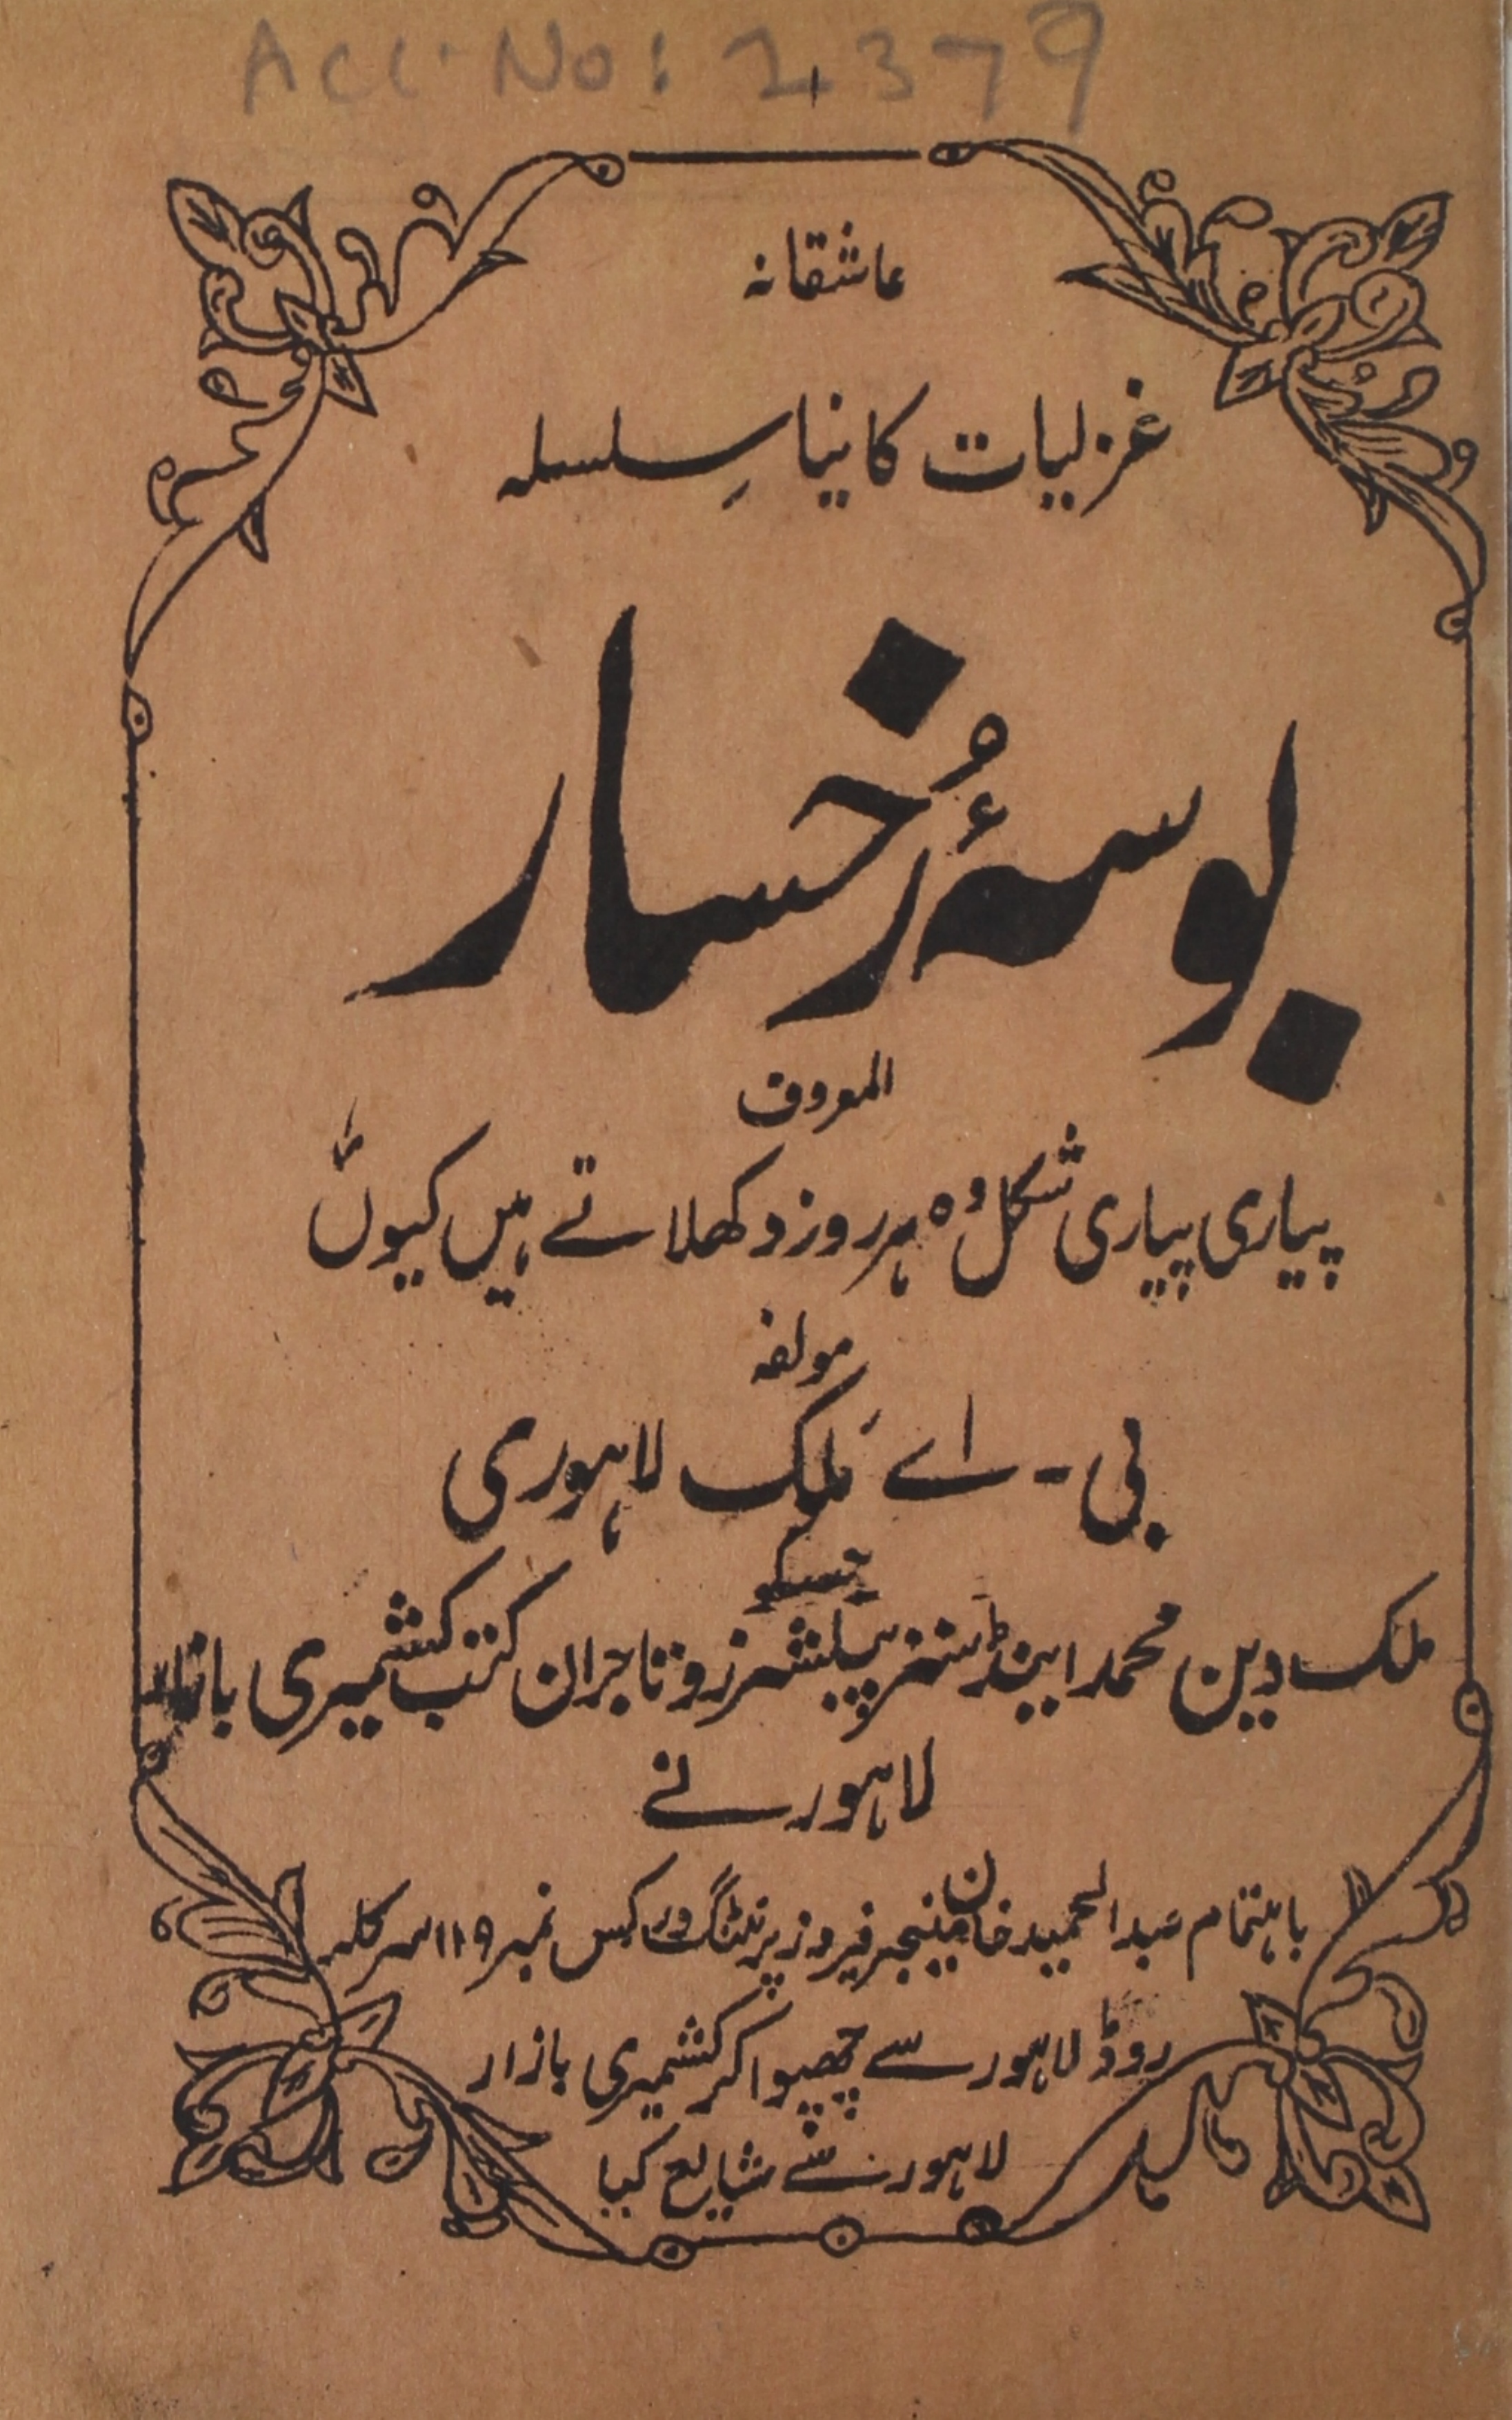 Acc. No: 2379
عاشقانہ
غزلیات کا نیا سِلسلہ
بوسۂ رُخسار
المعروف
پیاری پیاری شکل وہ ہر روز دکھلاتے ہیں کیوں
مولفہ
بی - اے مَلک لاہوری
جسکو
ملک دین محمد اینڈ سنز پبلشرز و تاجران کتب کشمیری بازار
لاہور نے
باہتمام عبدالحمید خان مینجر فیروز پرنٹنگ ورکس نمبر ۱۱۹ سرکلر
روڈ لاہور سے چھپوا کر کشمیری بازار
لاہور سے شایع کیا